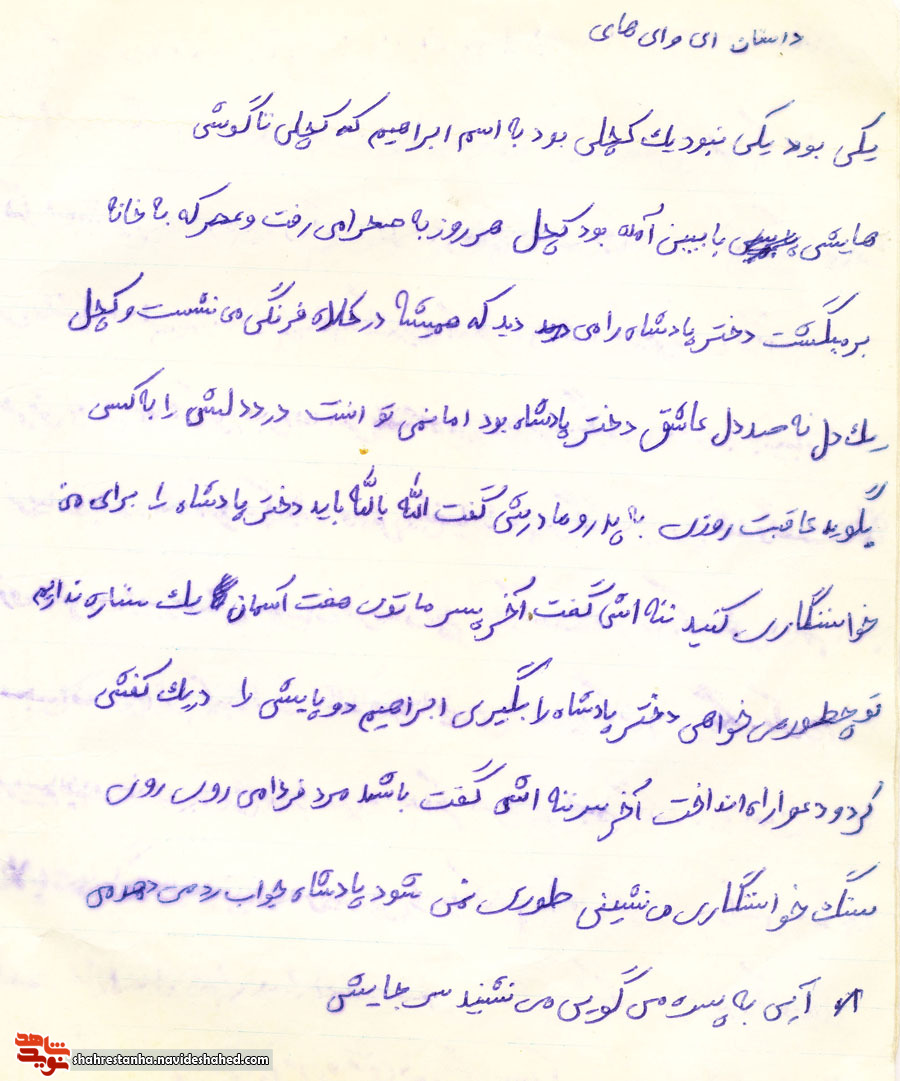 داستان ای وای های
یکی بود یکی نبود یك کچلی بود به اسم ابراهیم که کچلی تا گوش
هایش پایین آمده بود کچل هر روز به صحرا می رفت و عصر که به خانه
برمیگشت دختر پادشاه را می دید که همیشه در کلاه فرنگی می نشست و کچل
یك دل نه صد دل عاشق دختر پادشاه بود اما نمی توانست درد دلش را به کسی
بگوید عاقبت روزی به پدر و مادرش گفت الله بالله باید دختر پادشاه را برای من
خواستگاری کنید ننه اش گفت آخر پسر ما توی هفت آسمان یك ستاره نداریم
تو چطور می خواهی دختر پادشاه را بگیری ابراهیم دو پایش را در یك کفش
کرد و دعوا راه انداخت آخر سر ننه اش گفت باشد مرد فردا می روی روی
سنگ خواستگاری می نشینی طوری نمی شود پادشاه جواب رد می دهد می
آیی به پسره می گویی می نشیند سر جایش
نوید شاهد
shahrestanha.navideshahed.com